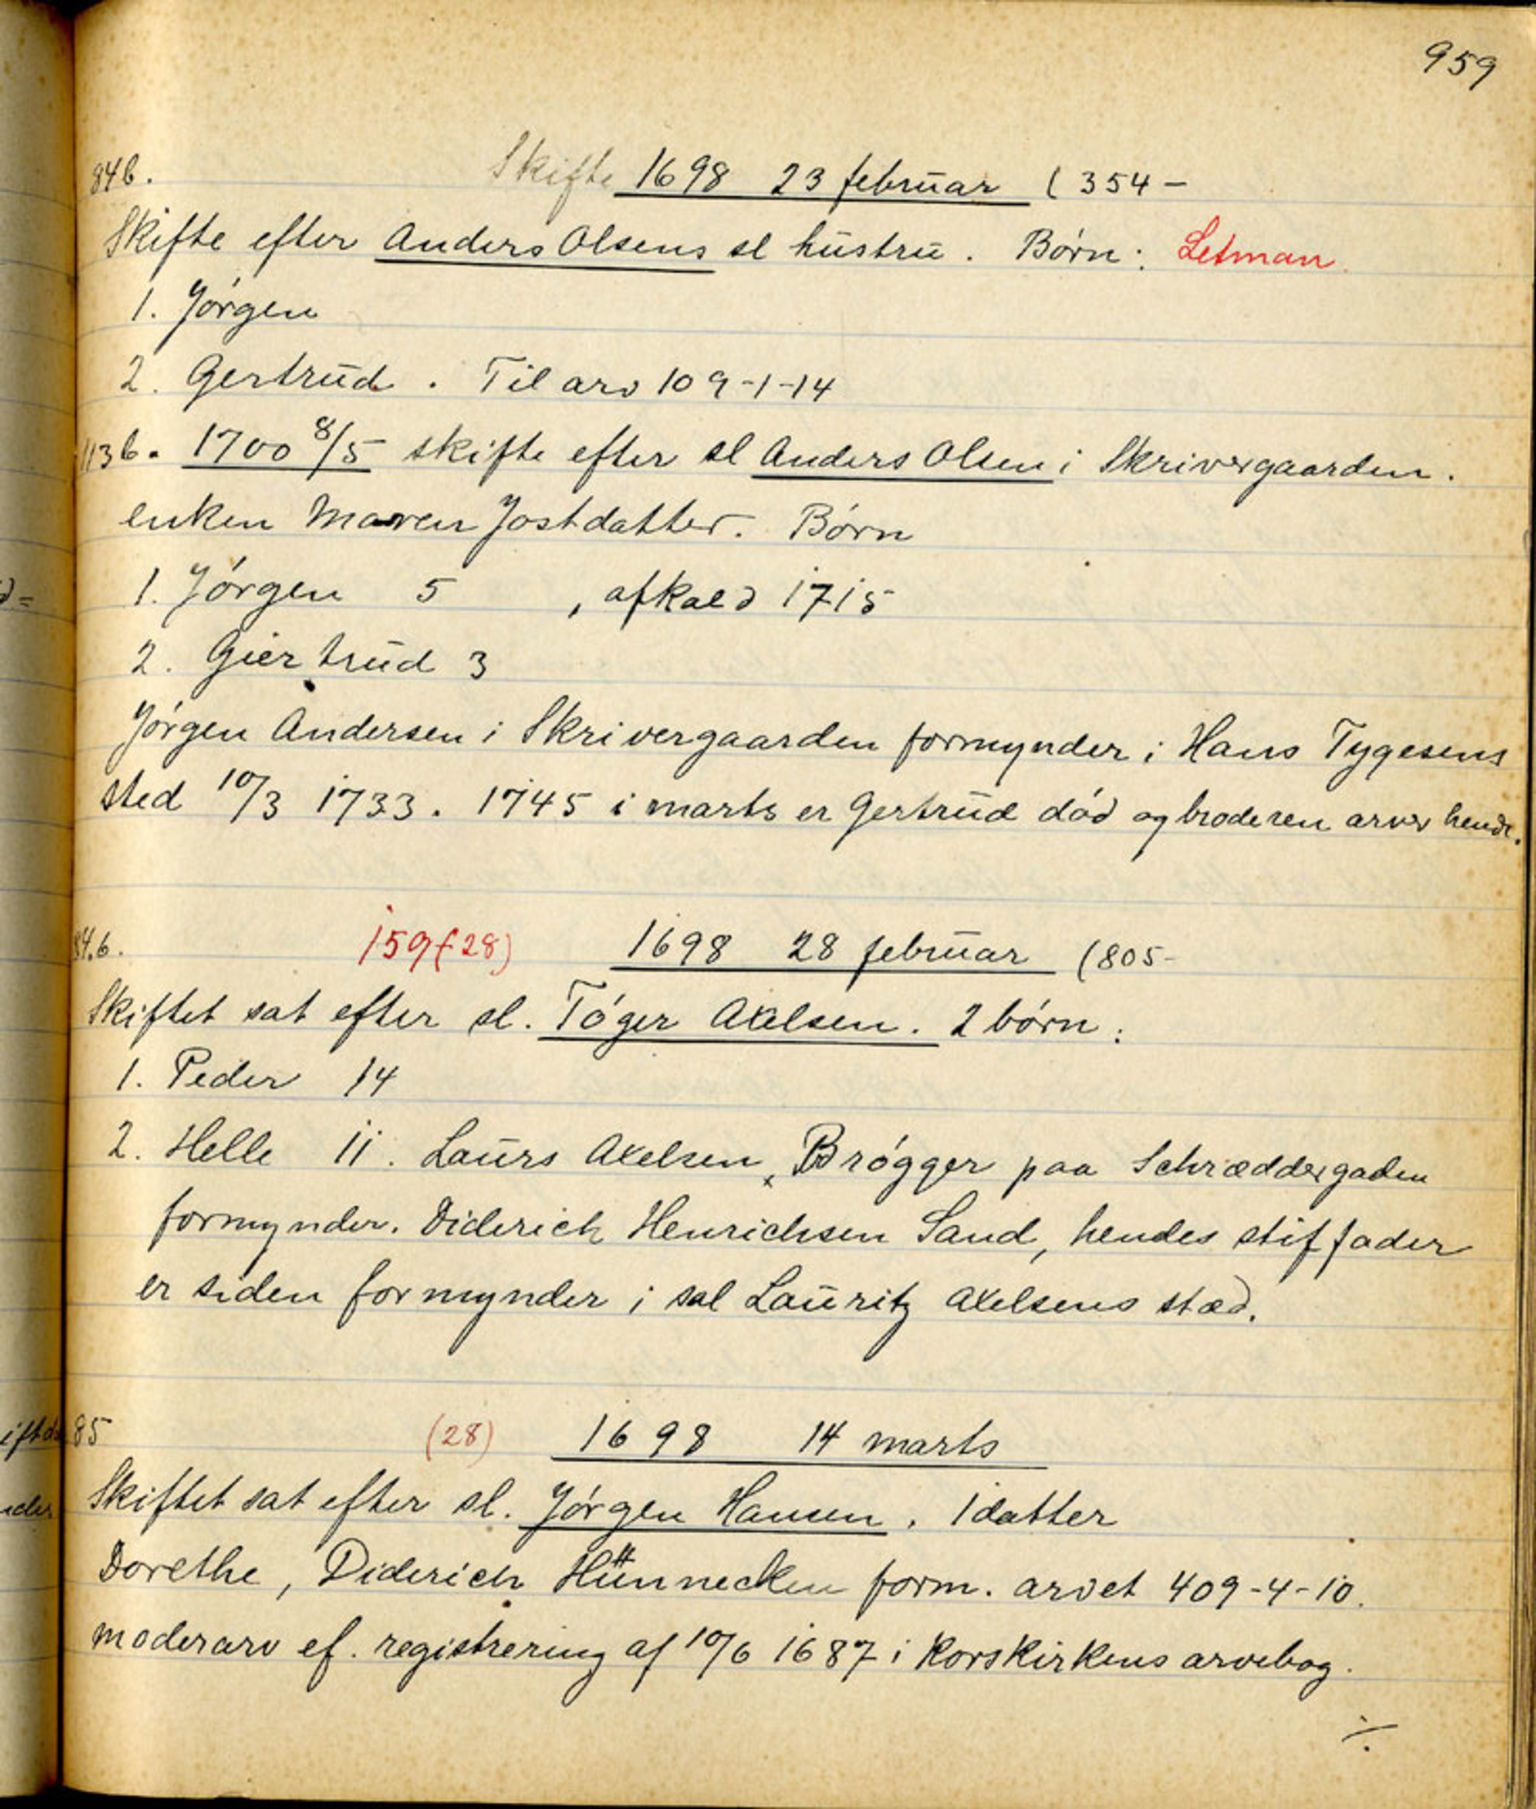 959
84b. Skifte 1698 23 februar (354-
Skifte efter Anders Olsens sl hustru. Børn: Letman
1. Jørgen
2. Gertrud. Til arv 109-1-14
113b. 1700 8/5 skifte efter sl Anders Olsen i Skrivergaarden.
enken Maren Jostdatter. Børn
1. Jørgen 5 , afkald 1715
2. Giertrud 3
Jørgen Andersen i Skrivergaarden formynder i Hans Tygesens
sted 10/3 1733. 1745 i marts er Gertrud død og broderen arver hende.
84.b. 159 (28) 1698 28 februar (805-
Skiftet sat efter sl. Tøger Axelsen. 2 børn:
1. Peder 14
2. Helle 11. Laurs Axelsen, Brøgger paa Schræddergaden
formynder. Diderich Henrichsen Sand, hendes stiffader
er siden formynder i sal Lauritz Axelsens stæd.
85 (28) 1698 14 marts
Skiftet sat efter sl. Jørgen Hansen. 1 datter
Dorethe, Diderich Hünnecken form. arvet 409-4-10.
moderarv ef. registrering af 10/6 1687 i Korskirkens arvebog.
./.